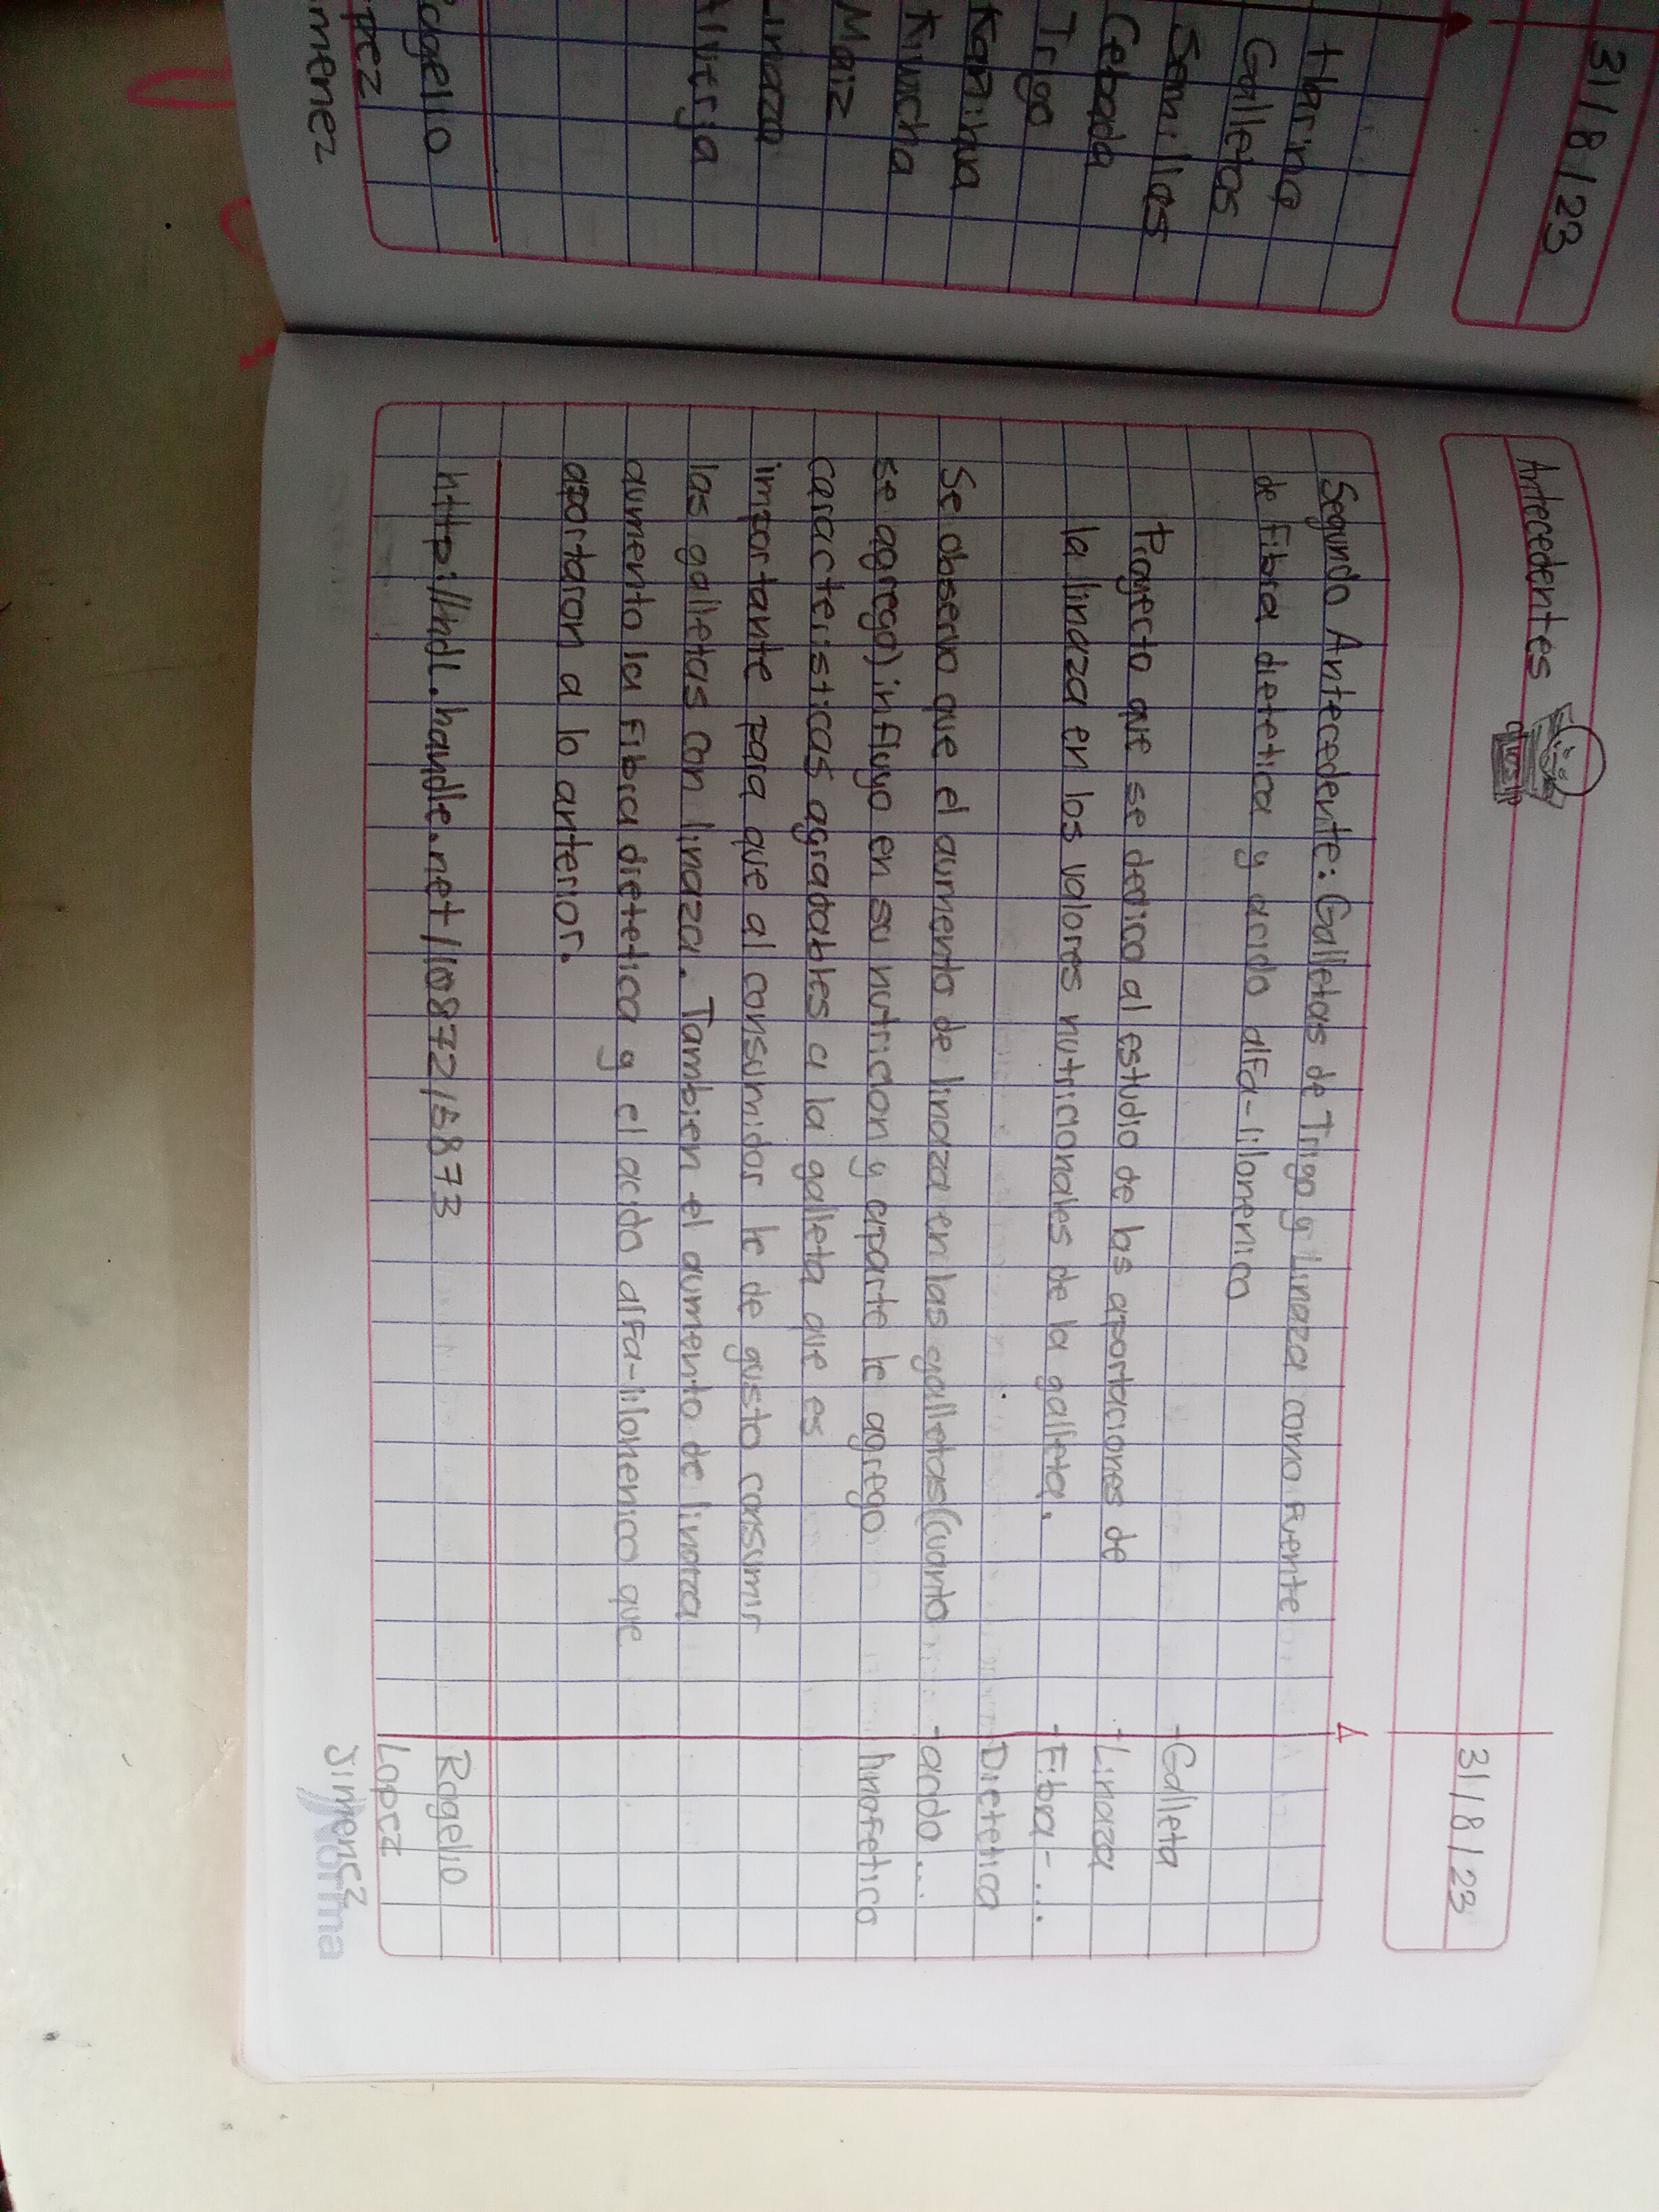 31/8/23
Harina
Galletas
Semillas
Cebada
Trigo
Kañihua
Kiwicha
Maiz
Linaza
Alverja
Antecedentes
31/8/23
Segundo Antecedente: Galletas de Trigo y Linaza como Fuente
de Fibra dietetica y acido alfa-lilonenico
Proyecto que se dedico al estudio de las aportaciones de
la linaza en los valores nutricionales de la galleta.
Se observo que el aumento de linaza en las galletas (cuanto
se agrego) influyo en su nutricion y aparte le agrego
caracteristicas agradables a la galleta que es
importante para que al consumidor le de gusto consumir
las galletas con linaza. Tambien el aumento de linaza
aumento la Fibra dietetica y el acido alfa-lilonenico que
aportaron a lo anterior.
http://hdl.handle.net/10872/5873
-Galleta
-Linaza
-Fiba-...
Dietetica
-acido...
Rogelio
Lopez
Jimenez
Norma